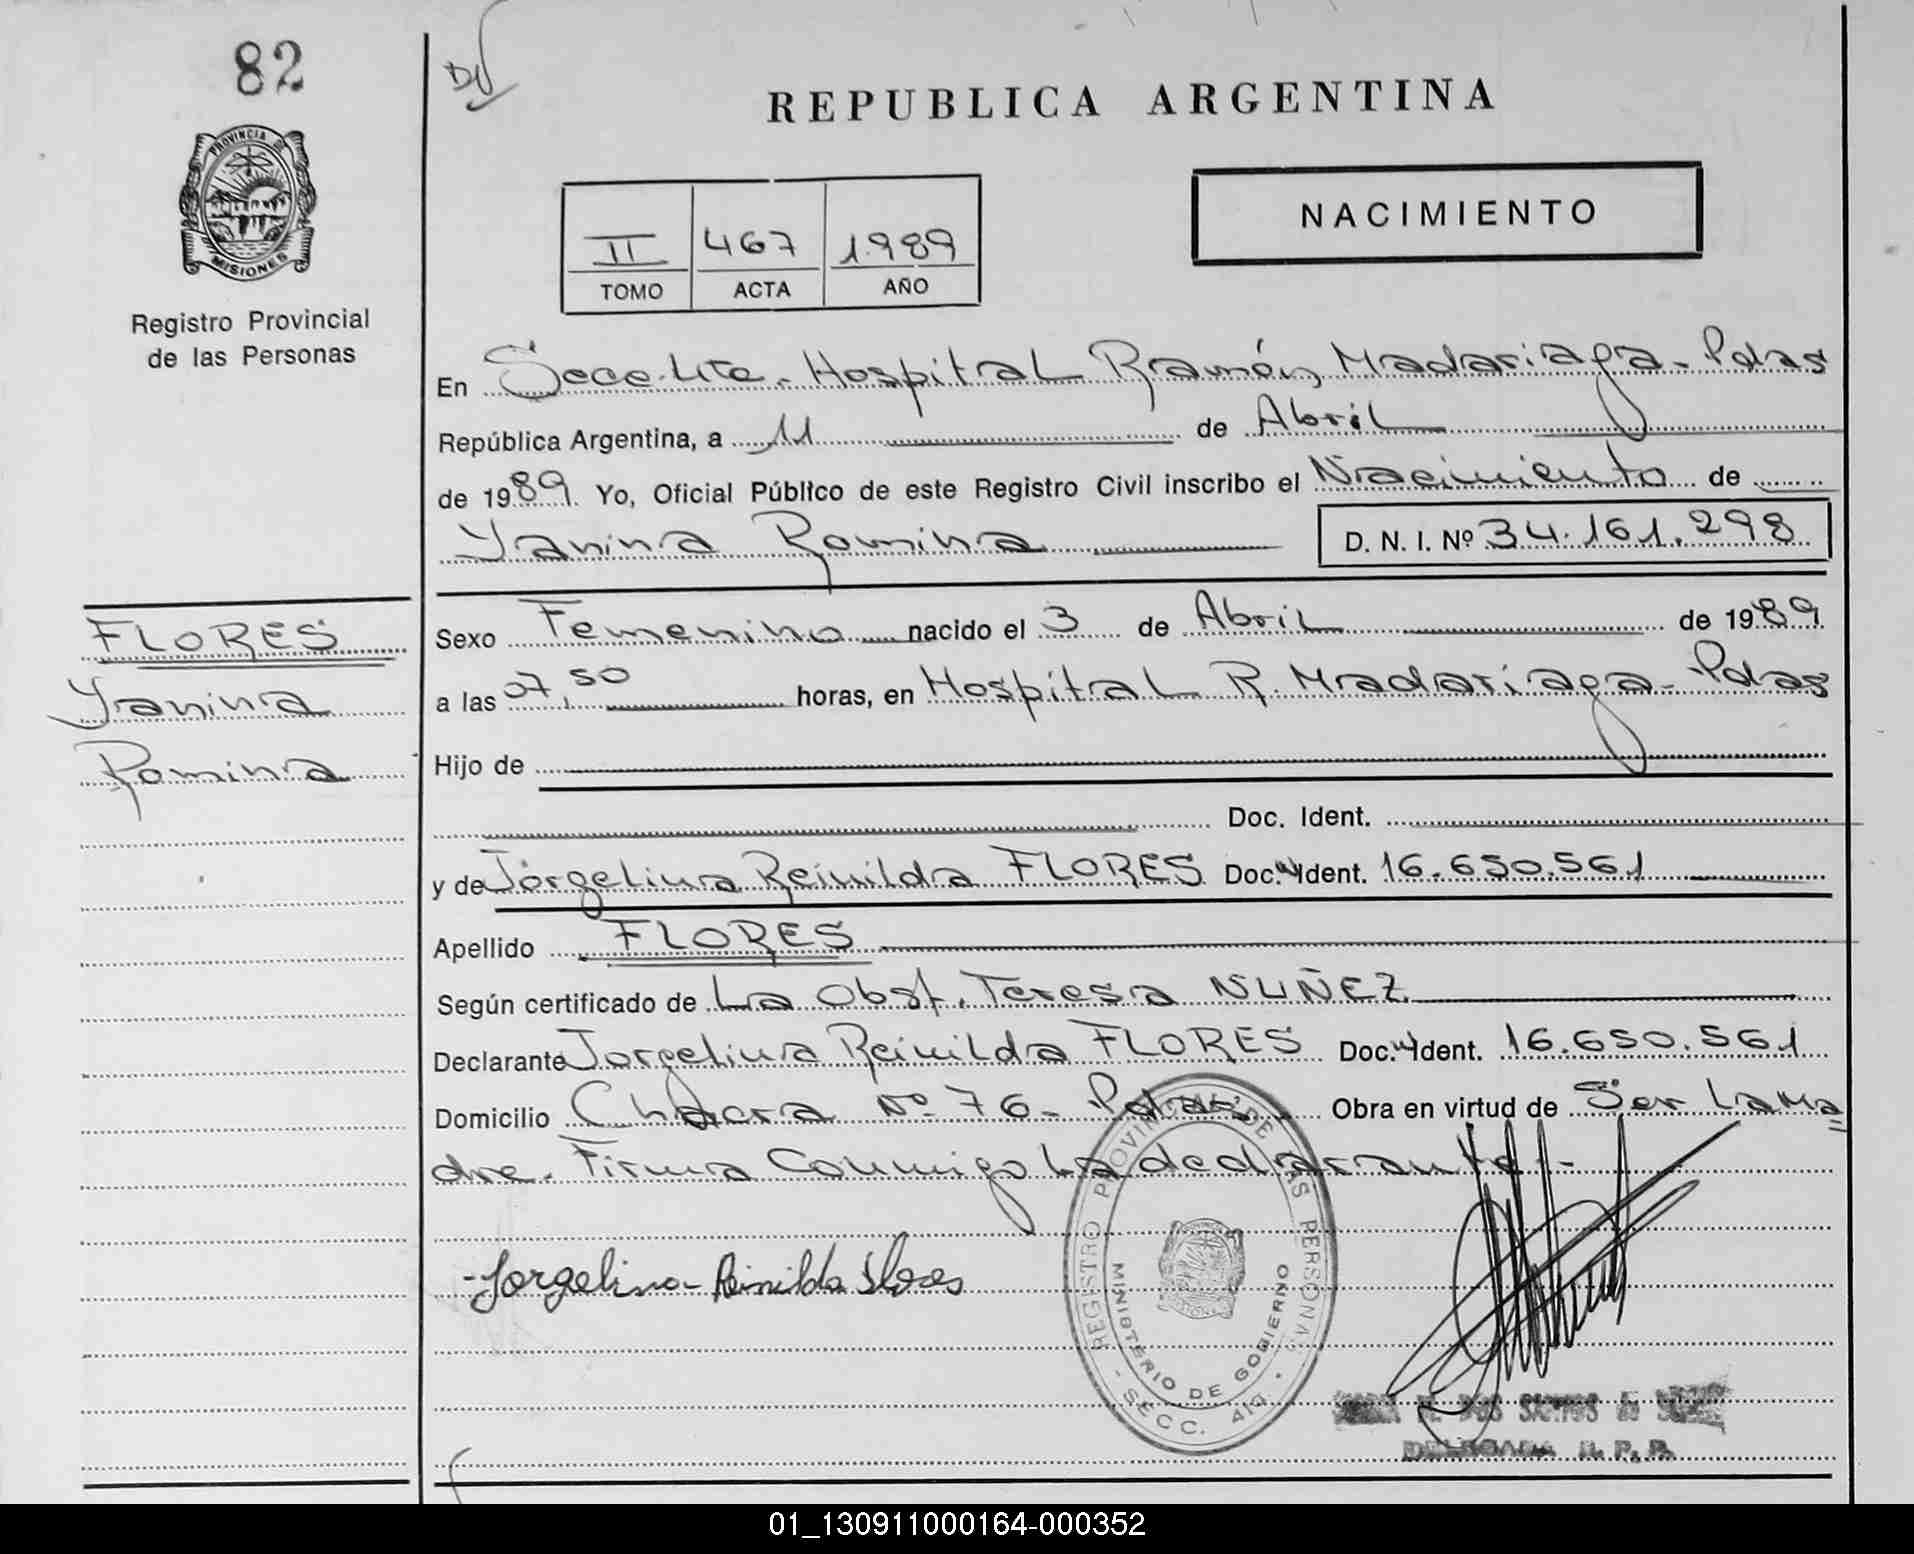 82
PROVINCIA DE
MISIONES
Registro Provincial
de las Personas
REPUBLICA ARGENTINA
NACIMIENTO
II 467 1.989
TOMO ACTA AÑO
En Secc. 4ta. Hospital Ramón Madariaga - Pdas
República Argentina, a 11 de Abril
de 1989. Yo, Oficial Público de este Registro Civil inscribo el Nacimiento de
Yanina Romina D. N. I. Nº 34.161.298
FLORES
Yanina
Romina
Sexo Femenino nacido el 3 de Abril de 1989
a las 07,50 horas, en Hospital R. Madariaga - Pdas
Hijo de
Doc. Ident.
y de Jorgelina Reinilda FLORES Doc. Ident. 16.650.561
Apellido FLORES
Según certificado de La Obst. Teresa NUÑEZ
Declarante Jorgelina Reinilda FLORES Doc. Ident. 16.650.561
Domicilio Chacra Nº 76 - Pdas. Obra en virtud de Ser La Ma
dre. Firma Conmigo La declarante.-
-Jorgelina- Reinilda Flores
REGISTRO PROVINCIAL DE LAS PERSONAS
MINISTERIO DE GOBIERNO
- SECC. 4ta. -
DE DOS SANTOS de
DELEGADA R. P. P.
01_130911000164-000352